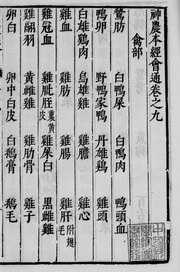 神農本經會通卷之九
禽部
鶩肪 白鴨屎 白鴨肉 鴨頭血
鴨卵 野鴨家鴨 丹雄雞 雞頭
白雄雞肉 烏雄雞 雞膽 雞心
雞血 雞肪 雞腸 雞肝
雞冠血 雞肶胵裏黃皮 雞屎白 黑雌雞
雞翮羽 黃雌雞 雞肋骨 雞子
卵白 卵中白皮 白鵝膏 鵝毛